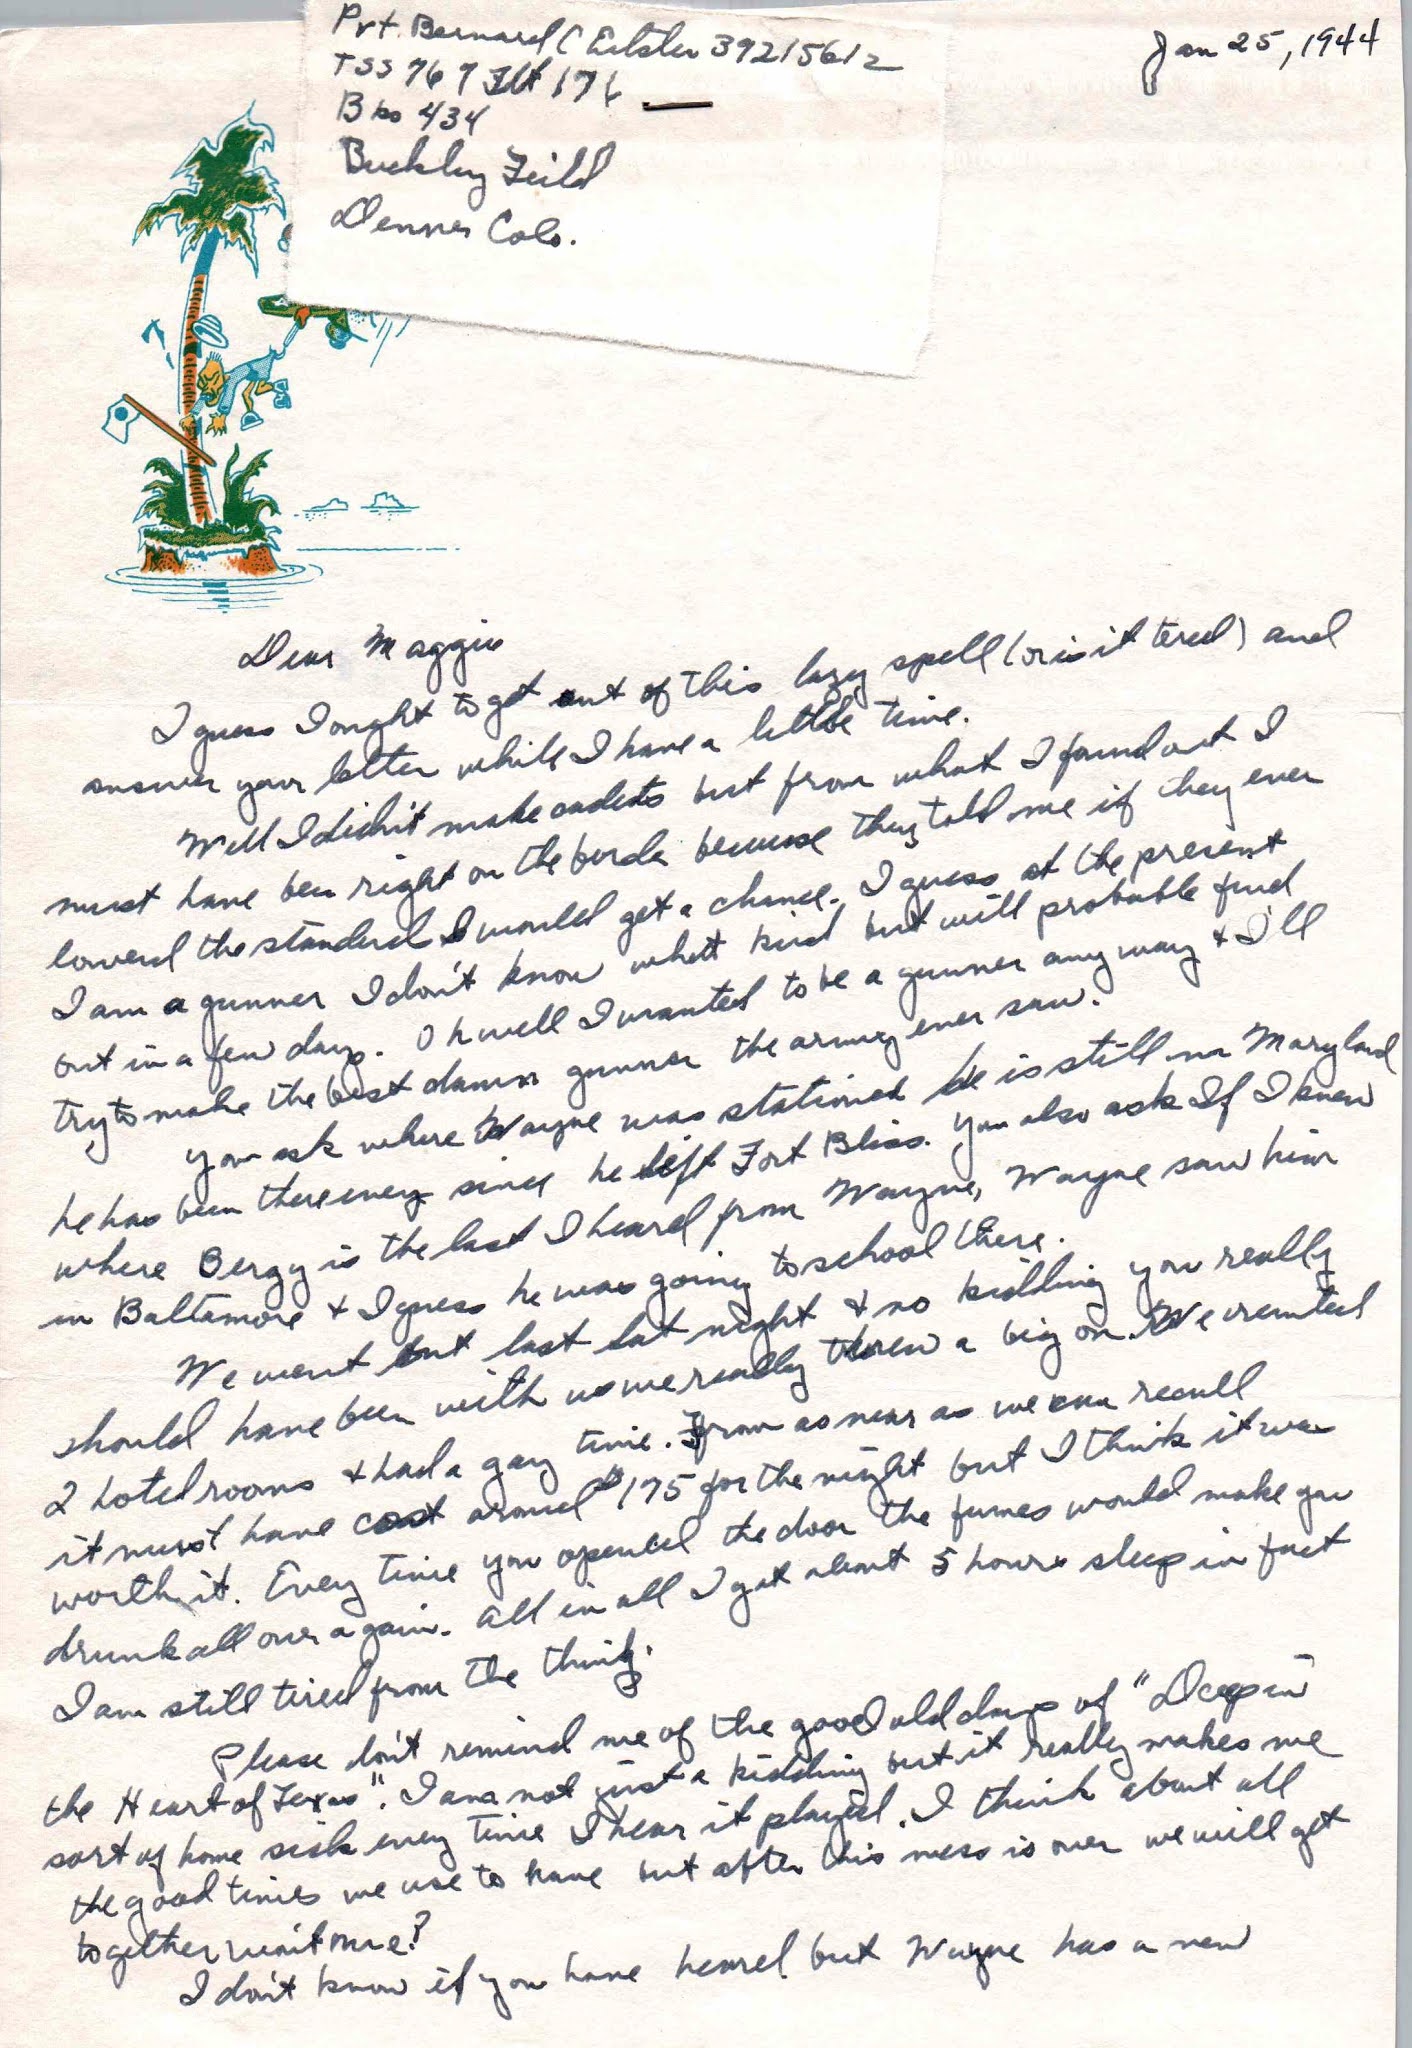 Pvt. Bernard C 39215612
TSS 767 Flt 176
Bks 434
Buckley Feild
Denver Colo.
Jan 25, 1944
Dear Maggie
I guess I ought to get out of this lazy spell (or is it tered) and
answer your letter while I have a little time.
Well I didn't make cadets but from what I found out I
must have ben right on the borde because they told me if they ever
lowerd the standerds I would get a chance. I guess at the present
I am a gunner I don't know what kind but will probable find
out in a few days. Oh well I wanted to be a gunner any way & I'll
try to make the best damn gunner the army ever saw.
You ask where Wayne was stationed he is still in Maryland
he has been there every since he left Fort Bliss. You also ask If I knew
where Bergy is the last I heard from Wayne, Wayne saw him
in Baltamore & I guess he was going to school there.
We went out last sat night & no kidding you really
should have been with us we really threw a big on. We rented
2 hotel rooms & had a gay time. From as near as we can recall
it must have cost around $175 for the night but I think it was
worth it. Every time you opened the door the fumes would make you
drunk all over again. All in all I got about 5 hours sleep in fact
I am still tired from the thing.
Please don't remind me of the good old days of "Deep in
the Heart of Texas". I am not just a kidding but it really makes me
sort of home sick every time I hear it played. I think about all
the good times we use to have but after this mess is over we will get
together wont we?
I don't know if you have heard but Wayne has a new